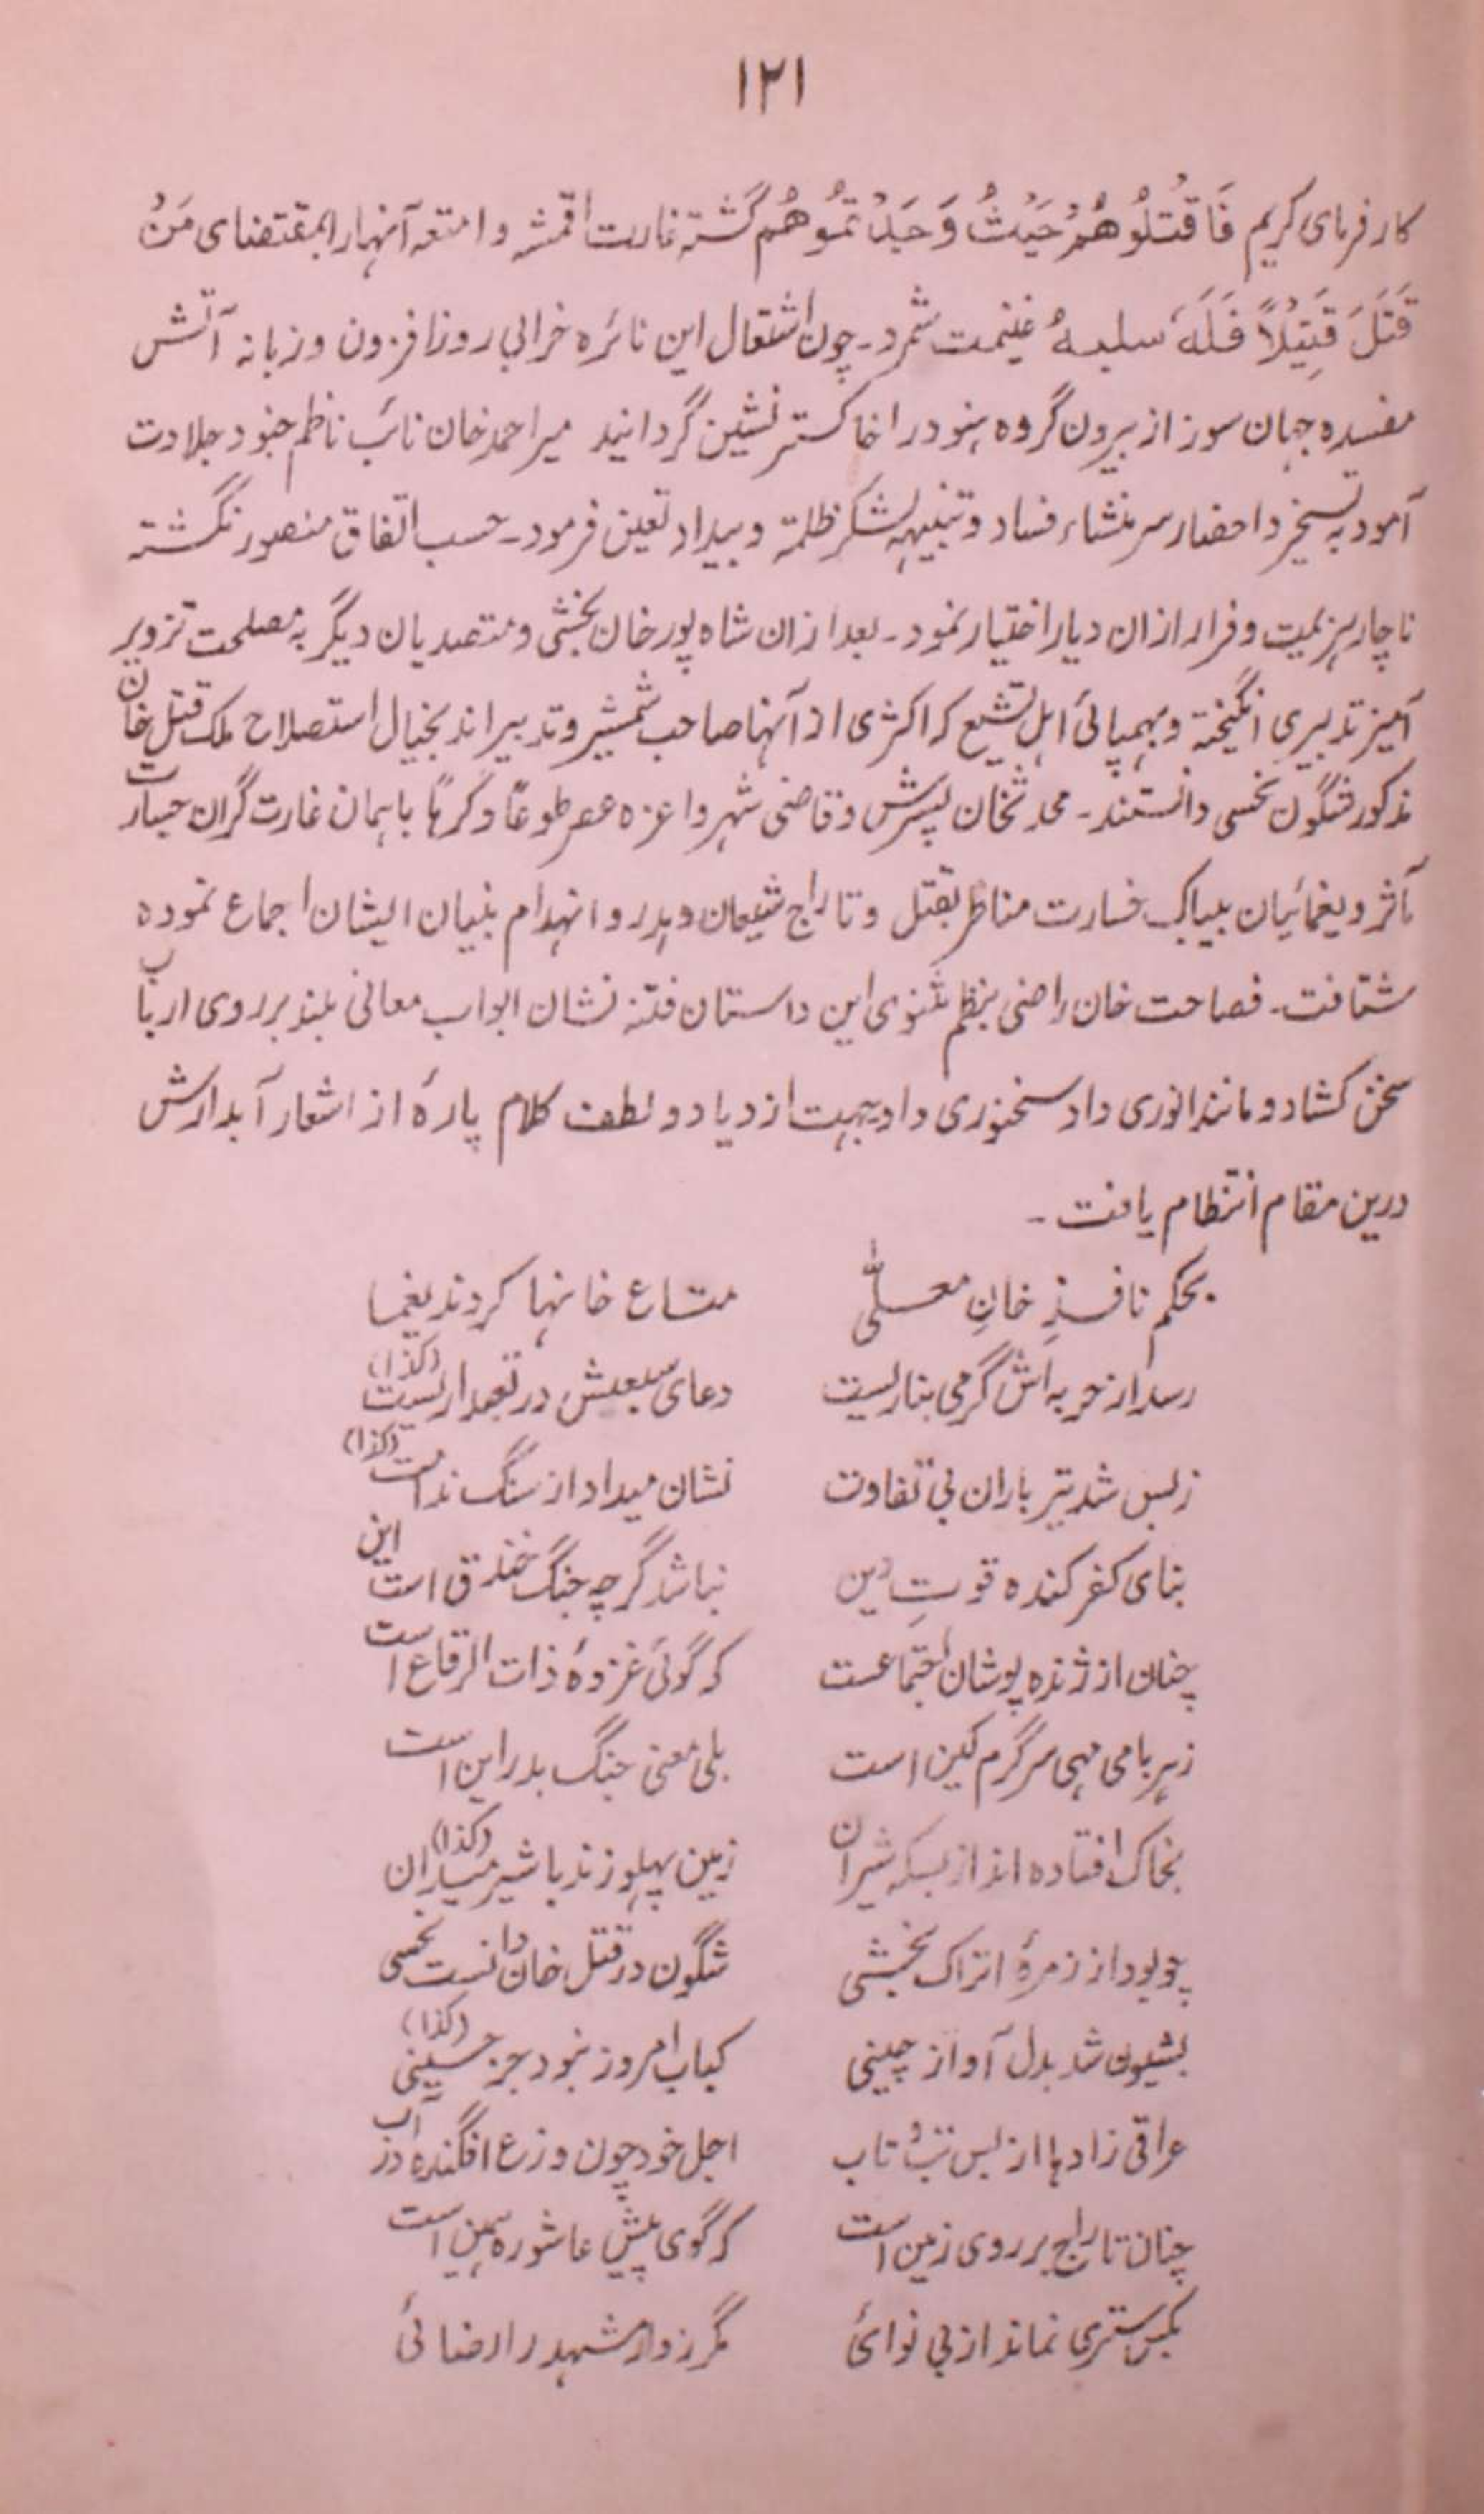 ۱۲۱
کارفرمای کریم فَاقْتُلُوْهُمْ حَیْثُ وَجَدْتُمُوْهُم گشته غارت اقمشه و امتعه آنها را بمقتضای مَنْ
قَتَلَ قَتِیْلاً فَلَهٗ سلبهٗ غنیمت شمرد۔ چون اشتعال این نائره خرابی روز افزون و زبانه آتش
مفسده جهان سوز از بیرون گروه هنود را خاکستر نشین گردانید میر احمد خان نائب ناظم جنود جلادت
آمود به تسخیر و احضار سر منشاء فساد و تنبیهه لشکر ظلمة و بیداد تعین فرمود۔ حسب اتفاق منصور نگشته
ناچار هزیمیت و فرار ازان دیار اختیار نمود۔ بعد ازان شاه پور خان بخشی و متصدیان دیگر به مصلحت تزویر
آمیز تدبیری انگیخته و بهمپائی اهل تشیع که اکثری از آنها صاحب شمشیر و تدبیر اند بخیال استصلاح ملک قتل خان
مذکور شگون نحسی دانستند۔ محمد خان پسرش و قاضی شهر و اعزه عصر طوعاً و کرهاً باهمان غارت گران جسارت
مآثر و یغمائیان بیباک خسارت مناظر بقتل و تاراج شیعان و هدر و انهدام بنیان ایشان اجماع نموده
شتافت۔ فصاحت خان راضی بنظم مثنوی این داستان فتنه نشان ابواب معانی بلند بر روی ارباب
سخن کشاد و مانند انوری داد سخنوری داد بجهت ازدیاد و لطف کلام پارهٔ از اشعار آبدارش
درین مقام انتظام یافت۔
بحکم نافذِ خانِ معلّٰی متاع خانها کردند یغما
رسد از حربه اش گرمی بنا ریست دعای سیعیش در تعهدار یست (کذا)
زبس شد تیر باران بی تفاوت نشان میداد از سنگ ندامت (کذا)
بنای کفر کنده قوتِ دین نباشد گرچه جنگ خندق است این
چنان از ژنده پوشان اجتماعست که گوئی غزوهٔ ذات الرقاع است
زهر بامی مهی سرگرم کین است بلی معنی جنگ بدر این است
بخاک افتاده اند از بسکه شیران زمین پهلو زند با شیر میاران (کذا)
چو بود از زمرهٔ اتراک بخشی شگون در قتل خان دانست نحسی
بشیون شد بدل آواز چینی کباب امروز نبود جز حسینی (کذا)
عراقی زادها از بس تب و تاب اجل خود چون وزع افگنده در آب
چنان تاراج بر روی زمین است که گوی پیش عاشوره همین است
بکس ستری نماند از بی نوائ مگر زوار مشهد را رضائی